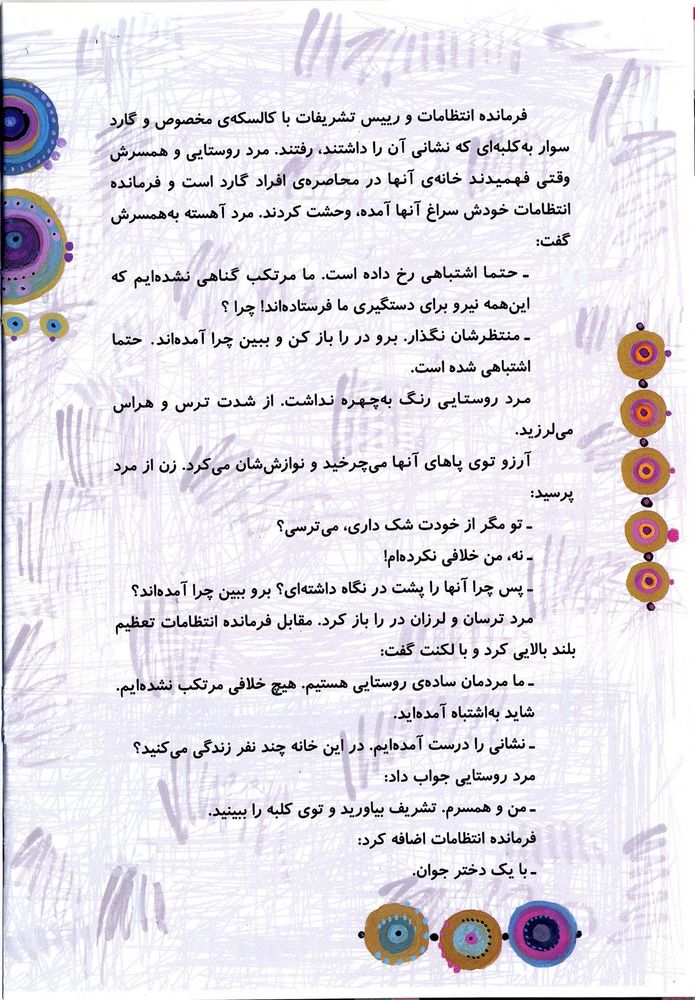 فرمانده انتظامات و رییس تشریفات با کالسکه‌ی مخصوص و گارد
سوار به‌کلبه‌ای که نشانی آن را داشتند، رفتند. مرد روستایی و همسرش
وقتی فهمیدند خانه‌ی آنها در محاصره‌ی افراد گارد است و فرمانده
انتظامات خودش سراغ آنها آمده، وحشت کردند. مرد آهسته به‌همسرش
گفت:
ـ حتما اشتباهی رخ داده است. ما مرتکب گناهی نشده‌ایم که
این‌همه نیرو برای دستگیری ما فرستاده‌اند! چرا ؟
ـ منتظرشان نگذار. برو در را باز کن و ببین چرا آمده‌اند. حتما
اشتباهی شده است.
مرد روستایی رنگ به‌چهره نداشت. از شدت ترس و هراس
می‌لرزید.
آرزو توی پاهای آنها می‌چرخید و نوازش‌شان می‌کرد. زن از مرد
پرسید:
ـ تو مگر از خودت شک داری، می‌ترسی؟
ـ نه، من خلافی نکرده‌ام!
ـ پس چرا آنها را پشت در نگاه داشته‌ای؟ برو ببین چرا آمده‌اند؟
مرد ترسان و لرزان در را باز کرد. مقابل فرمانده انتظامات تعظیم
بلند بالایی کرد و با لکنت گفت:
ـ ما مردمان ساده‌ی روستایی هستیم. هیچ خلافی مرتکب نشده‌ایم.
شاید به‌اشتباه آمده‌اید.
ـ نشانی را درست آمده‌ایم. در این خانه چند نفر زندگی می‌کنید؟
مرد روستایی جواب داد:
ـ من و همسرم. تشریف بیاورید و توی کلبه را ببینید.
فرمانده انتظامات اضافه کرد:
ـ با یک دختر جوان.